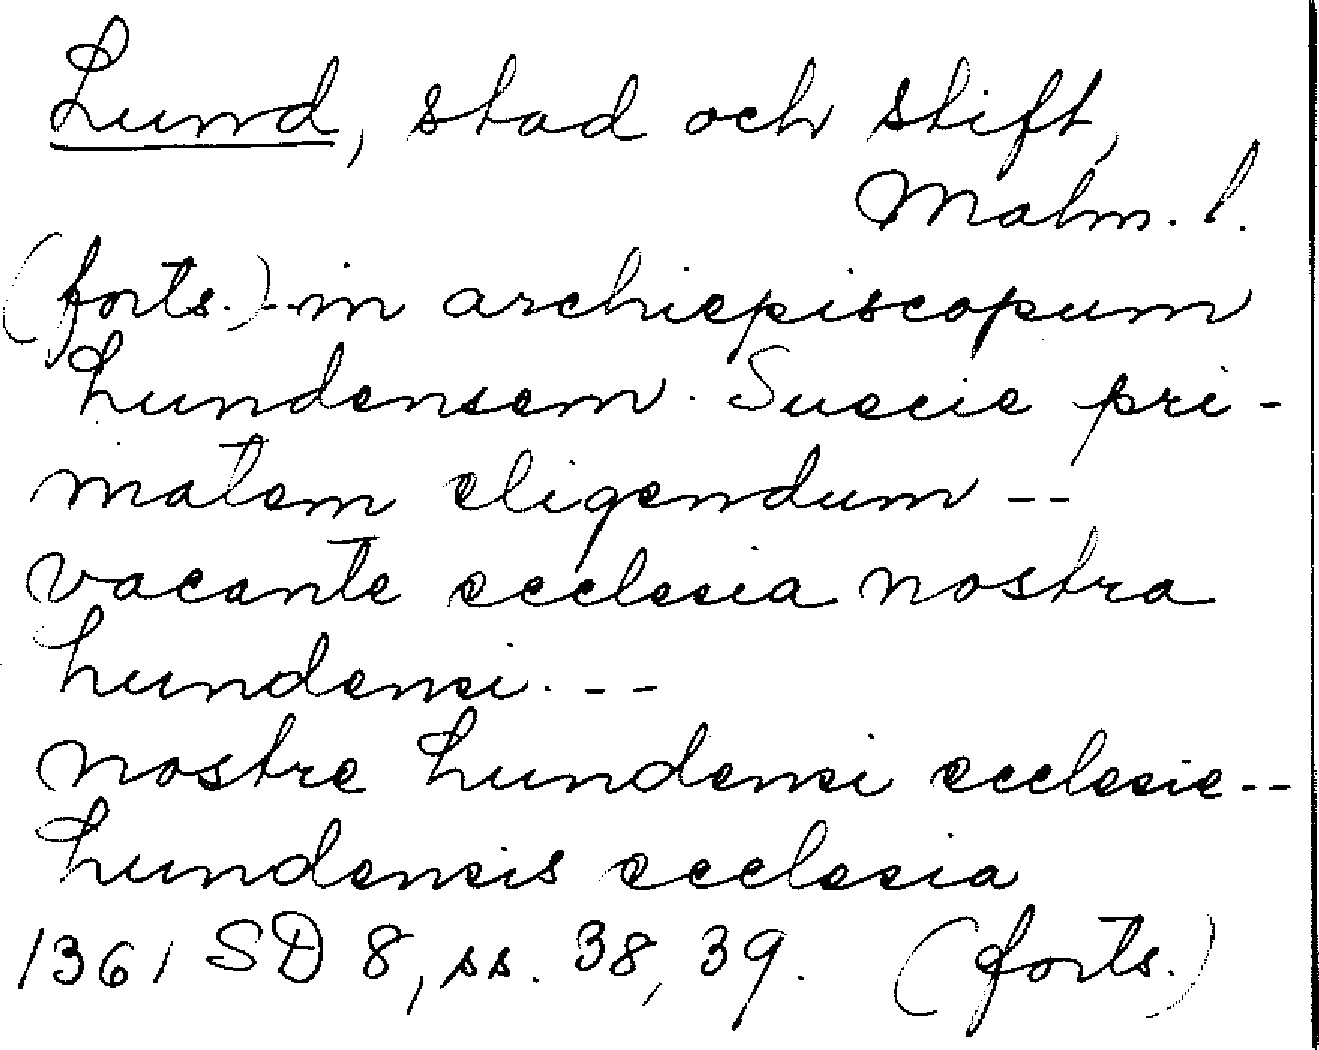 Lund, stad och stift,
Malm. l.
(forts.) -- in archiepiscopum
Lundensem. Suecie pri-
matem eligendum --
vacante ecclesia nostra
Lundensi. --
nostre Lundensi ecclesie --
Lundensis ecclesia
1361 SD 8, ss. 38, 39. (forts.)